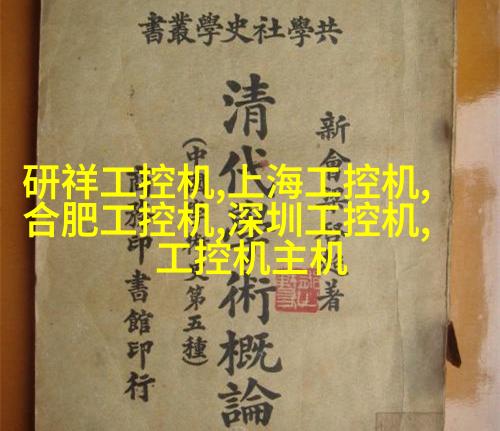 共學社史學叢書
新會著
清代術概論
(中史第五種)
務印書館印行
研祥工控机,上海工控机,
合肥工控机,深圳工控机,
工控机主机